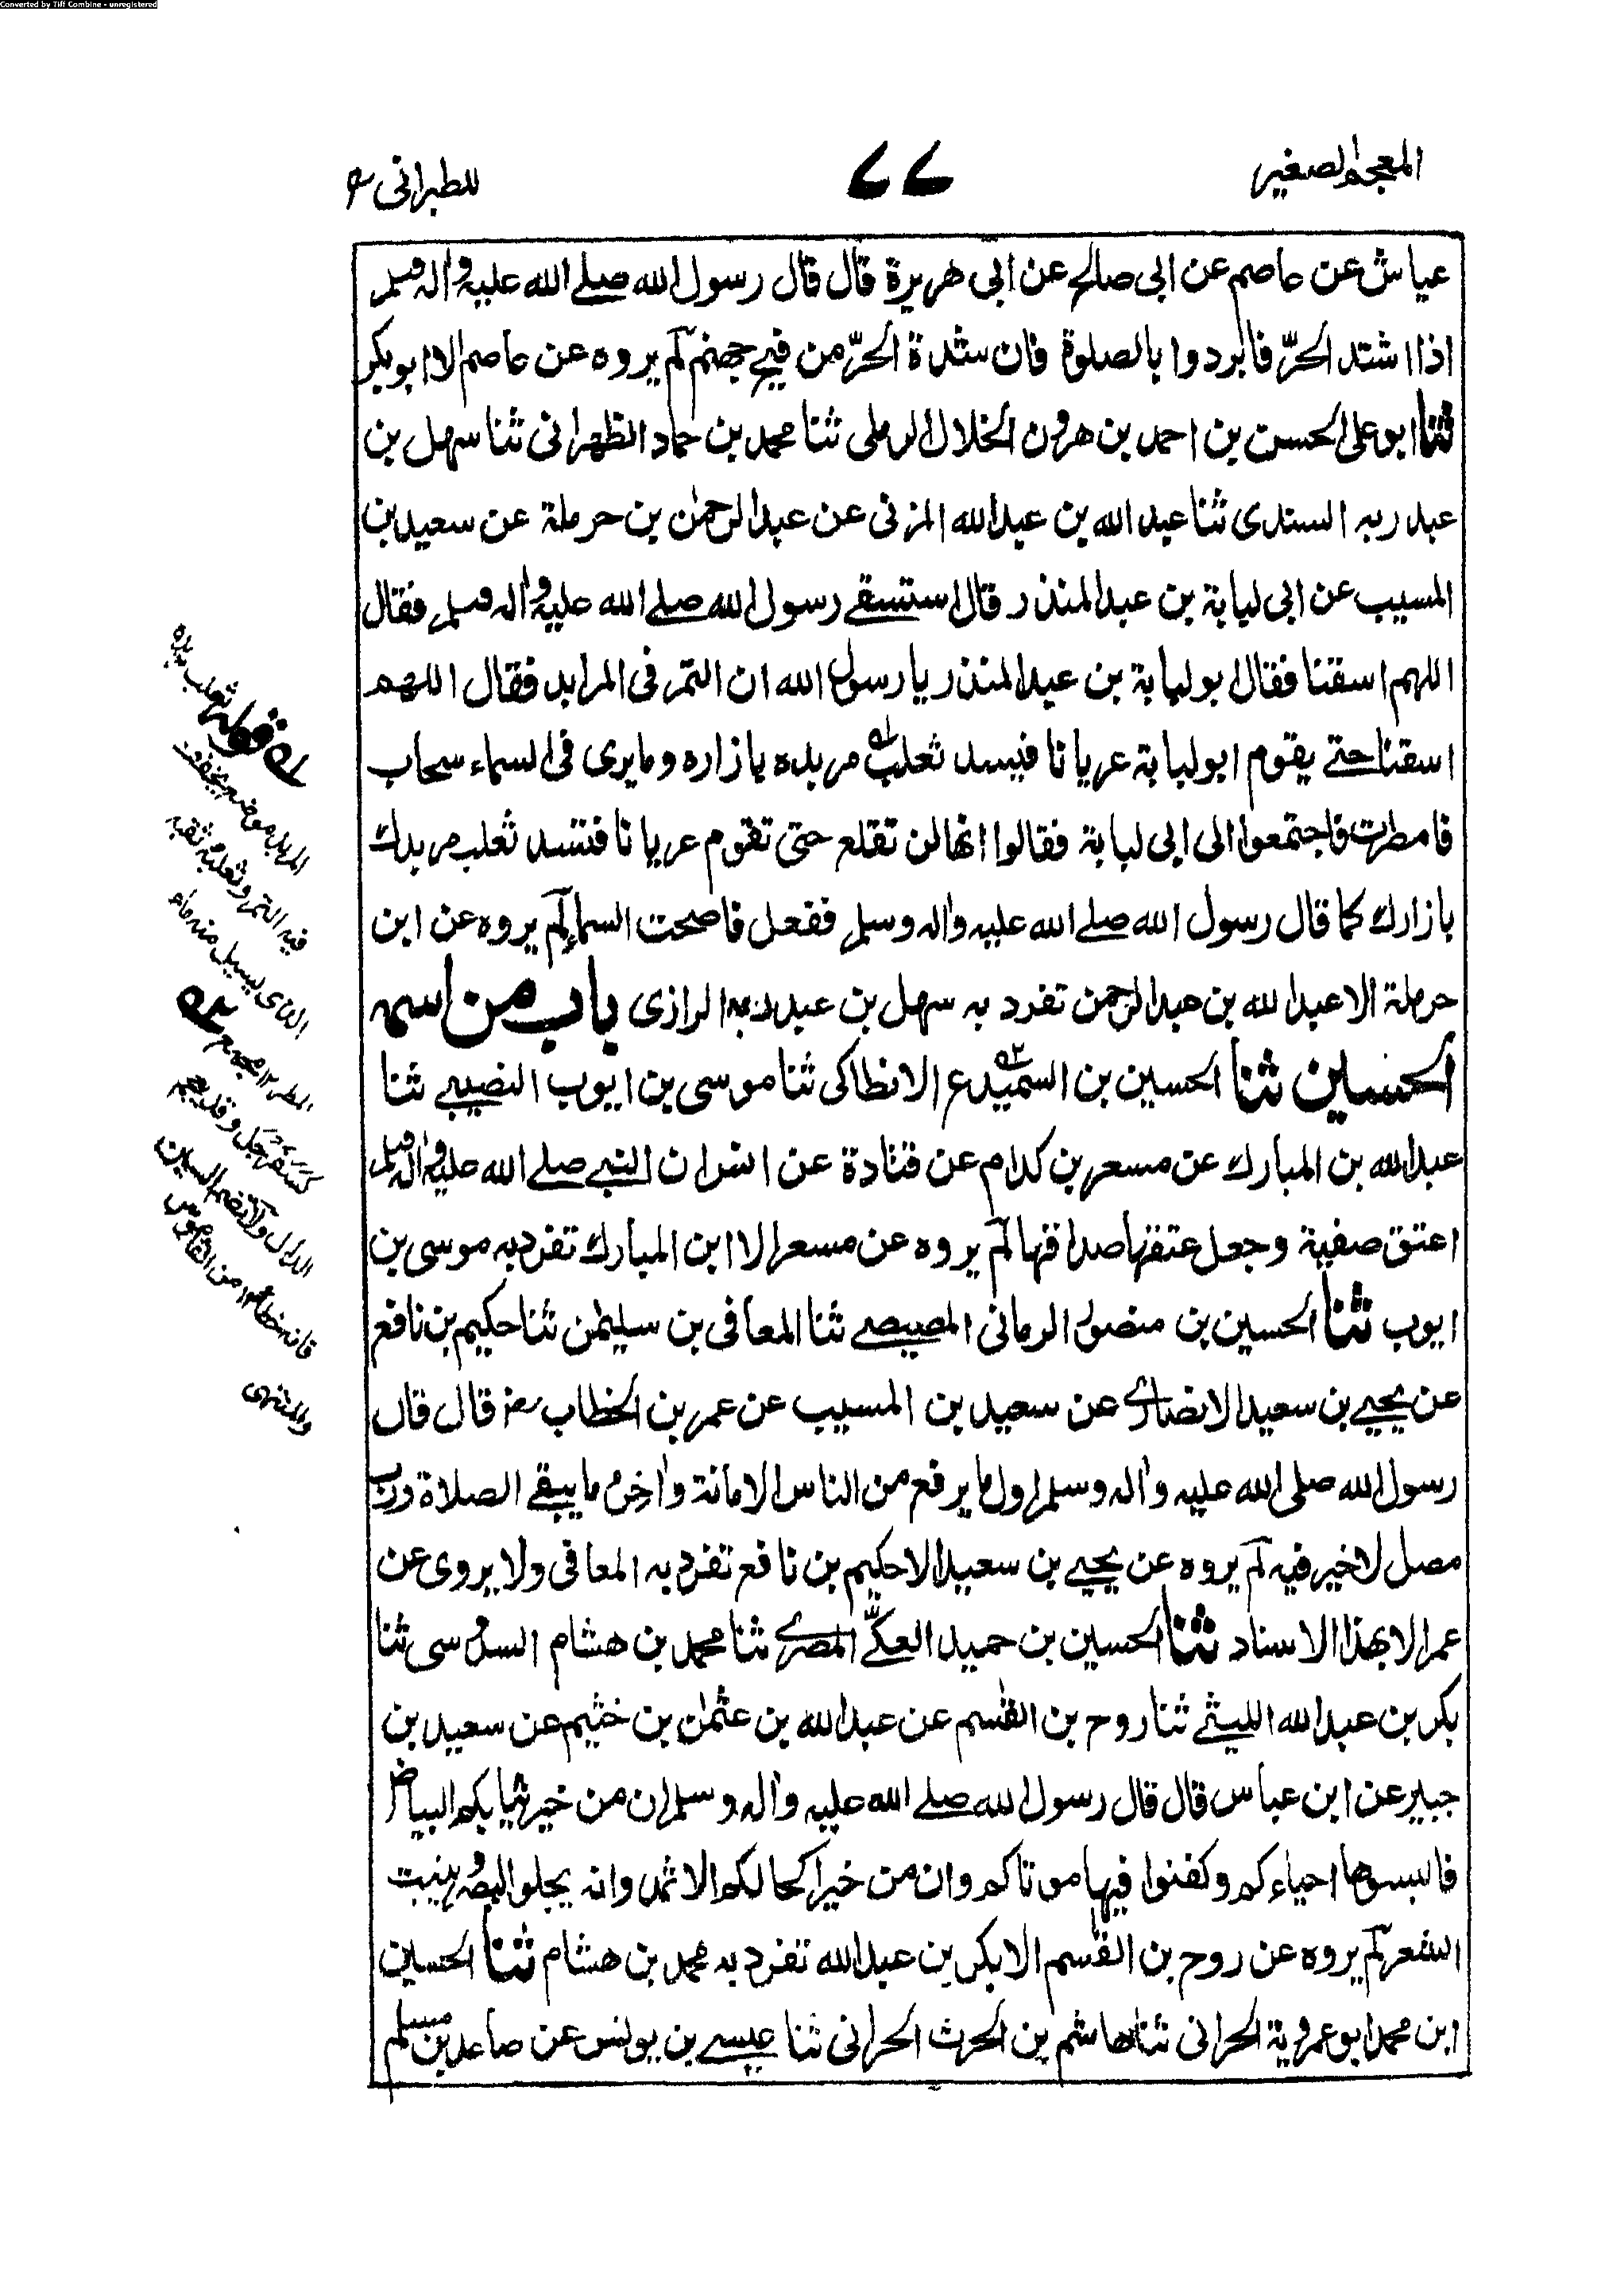 Converted by Tiff Combine - unregistered
المعجم الصغير
٧٧
للطبرانی
عياش عن عاصم عن ابی صالح عن ابی هريرة قال قال رسول الله صلے الله عليه واٰله وسلم
اذا اشتد الحرّ فابردوا بالصلوة فان شدة الحرّ من فيح جهنم لم يروه عن عاصم الا ابو بكر
ثنا ابو علی الحسن بن احمد بن هرون الخلال الرملی ثنا محمد بن حماد الظهرانی ثنا سهل بن
عبد ربه السندی ثنا عبد الله بن عبد الله المزنی عن عبد الرحمٰن بن حرملة عن سعيد بن
المسيب عن ابی لبابة بن عبد المنذر قال استسقے رسول الله صلے الله عليه واٰله وسلم فقال
اللهم اسقنا فقال ابو لبابة بن عبد المنذر يا رسول الله ان التمر فی المرابد فقال اللهم
اسقنا حتے يقوم ابو لبابة عريانا فيسد ثعلب مربده بازاره وما يری فی السماء سحاب
فامطرت فاجتمعوا الی ابی لبابة فقالوا انها لن تقلع حتی تقوم عريانا فتسد ثعلب مربدك
بازارك كما قال رسول الله صلے الله عليه واٰله وسلم ففعل فاصحت السماء لم يروه عن ابن
حرملة الا عبد الله بن عبد الرحمن تفرد به سهل بن عبد ربه الرازی باب من اسمه
الحسين ثنا الحسين بن السميدع الانطاكی ثنا موسی بن ايوب النصيبے ثنا
عبد الله بن المبارك عن مسعر بن كدام عن قتادة عن انس ان النبے صلے الله عليه واٰله وسلم
اعتق صفية وجعل عتقها صداقها لم يروه عن مسعر الا ابن المبارك تفرد به موسی بن
ايوب ثنا الحسين بن منصور الرمانی المصيصے ثنا المعافی بن سليمٰن ثنا حكيم بن نافع
عن يحيے بن سعيد الانصارے عن سعيد بن المسيب عن عمر بن الخطاب رضہ قال قال
رسول الله صلی الله عليه واٰله وسلم اول ما يرفع من الناس الامانة واٰخر ما يبقے الصلاة ورب
مصل لا خير فيه لم يروه عن يحيے بن سعيد الا حكيم بن نافع تفرد به المعافی ولا يروی عن
عمر الا بهذا الاسناد ثنا الحسين بن حميد العكّے المصرے ثنا محمد بن هشام السدوسی ثنا
بكر بن عبد الله الليثے ثنا روح بن القٰسم عن عبد الله بن عثمٰن بن خثيم عن سعيد بن
جبير عن ابن عباس قال قال رسول الله صلے الله عليه واٰله وسلم ان من خير ثيابكم البياض
فالبسوها احياءكم وكفنوا فيها موتاكم وان من خير اكحالكم الاثمد وانه يجلو البصر وينبت
الشعر لم يروه عن روح بن القٰسم الا بكر بن عبد الله تفرد به محمد بن هشام ثنا الحسين
ابن محمد ابو عروبة الحرانی ثنا هاشم بن الحرث الحرانی ثنا عيسے بن يونس عن صاعد بن مسلم
له قوله ثعلب مربده
المربد موضع يجفف
فيه التمر وثعلبه ثقبه
الذی يسيل منه ماء
المطر ١٢ مجمع
كسفرجل وقد يعجم
الدال ولا تضم السين
فانه خطأ ١٢ من القاموس